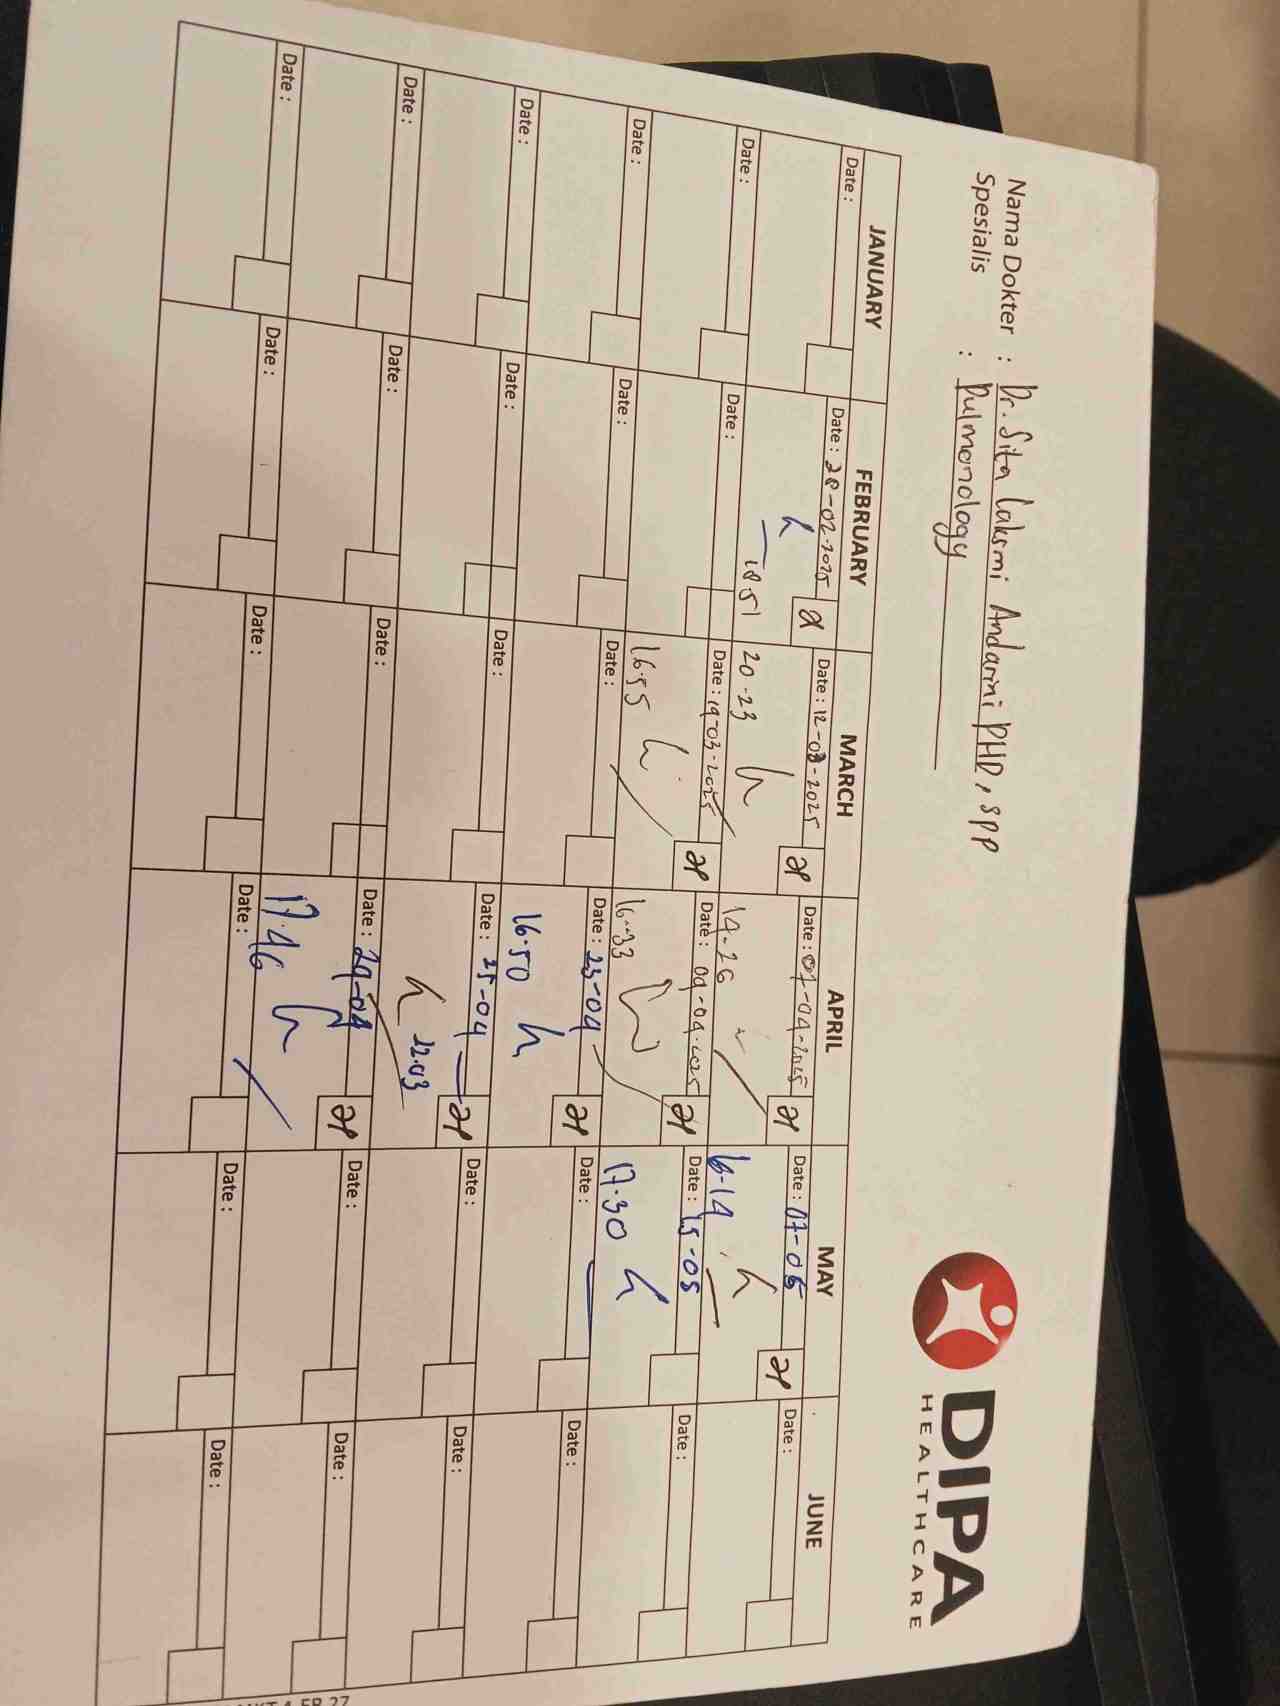 Nama Dokter : Dr. Sita Laksmi Andarini PHD, SPP
Spesialis : Pulmonology
DIPA
HEALTHCARE
JANUARY FEBRUARY MARCH APRIL MAY JUNE
Date : Date : 28-02-2025 Date : 12-03-2025 Date : 07-04-2025 Date : 07-05 Date :
18.51 20.23 14.26 16.14
Date : Date : Date : 19-03-2025 Date : 09-04-2025 Date : 15-05 Date :
16.55 16.33 17.30
Date : Date : Date : Date : 23-04 Date : Date :
16.50
Date : Date : Date : Date : 25-04 Date : Date :
12.03
Date : Date : Date : Date : 29-04 Date : Date :
17.46
Date : Date : Date : Date : Date : Date :